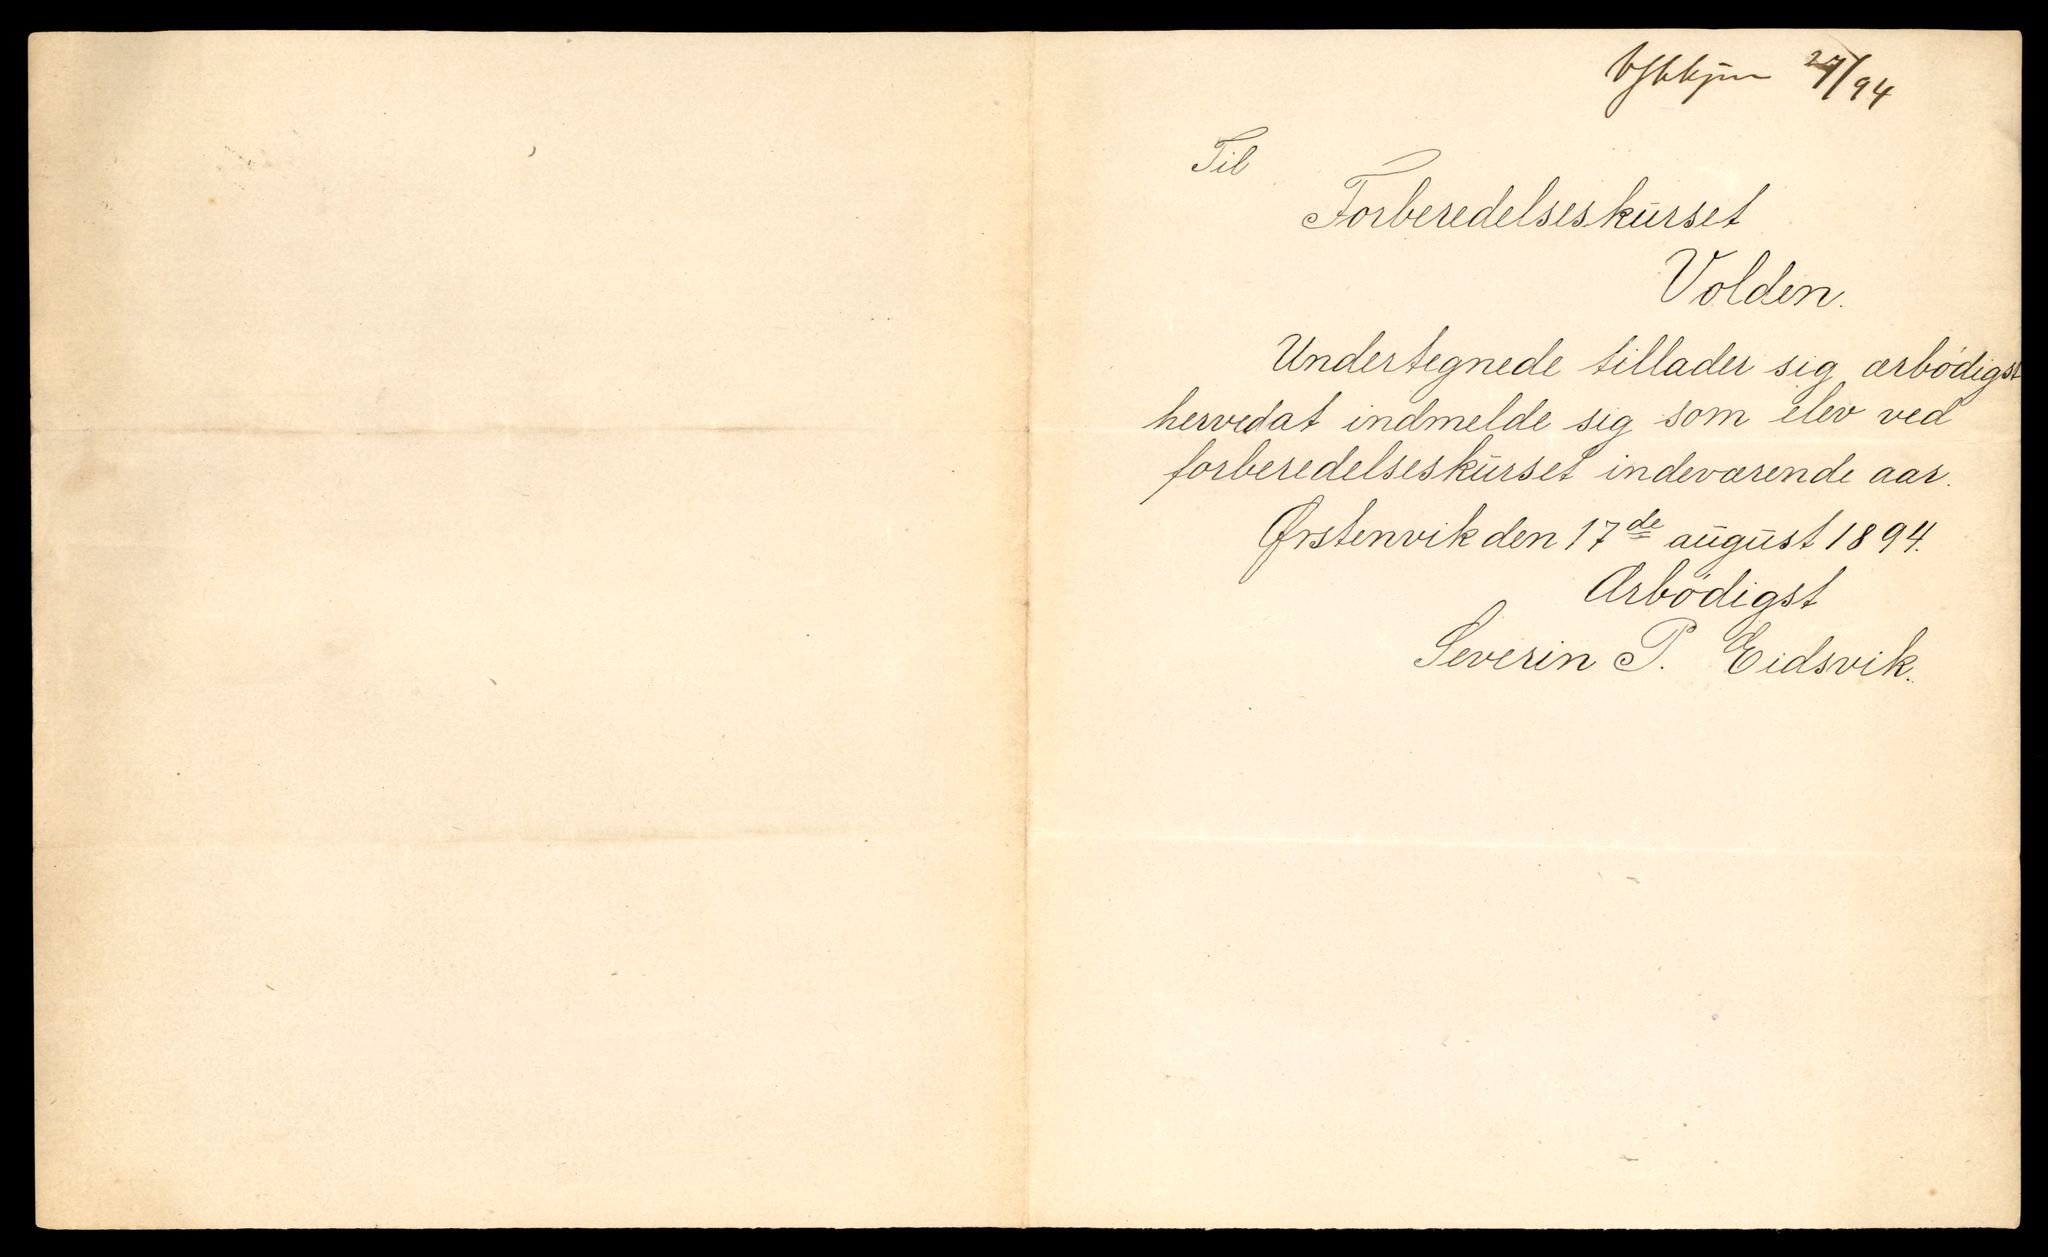 27/94
Til
Forberedelseskurset
Volden.
Undertegnede tillader sig ærbödigst
hervedat indmelde sig som elev ved
forberedelseskurset indeværende aar.
Ørstenvik den 17de august 1894.
Ærbödigst
Severin P. Eidsvik.